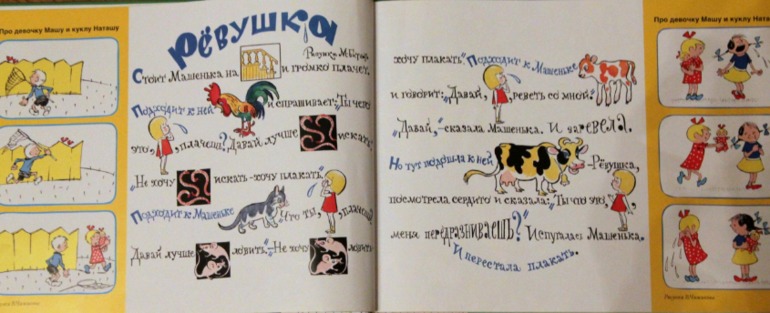 Про девочку Машу и куклу Наташу
РЁВУШКА
Рисунки М.
Стоит Машенька на и громко плачет.
Подходит к ней и спрашивает: "Ты чего
это, , плачешь? Давай лучше искать."
"Не хочу искать - хочу плакать."
Подходит к Машеньке "Что ты, , плачешь?
Давай лучше ловить." "Не хочу ловить -
хочу плакать." Подходит к Машеньке
и говорит: "Давай, , реветь со мной."
"Давай," - сказала Машенька. И заревела.
Но тут подошла к ней - Рёвушка,
посмотрела сердито и сказала: "Ты что это, ,
меня передразниваешь?" Испугалась Машенька.
И перестала плакать.
Про девочку Машу и куклу Наташу
Рисунки